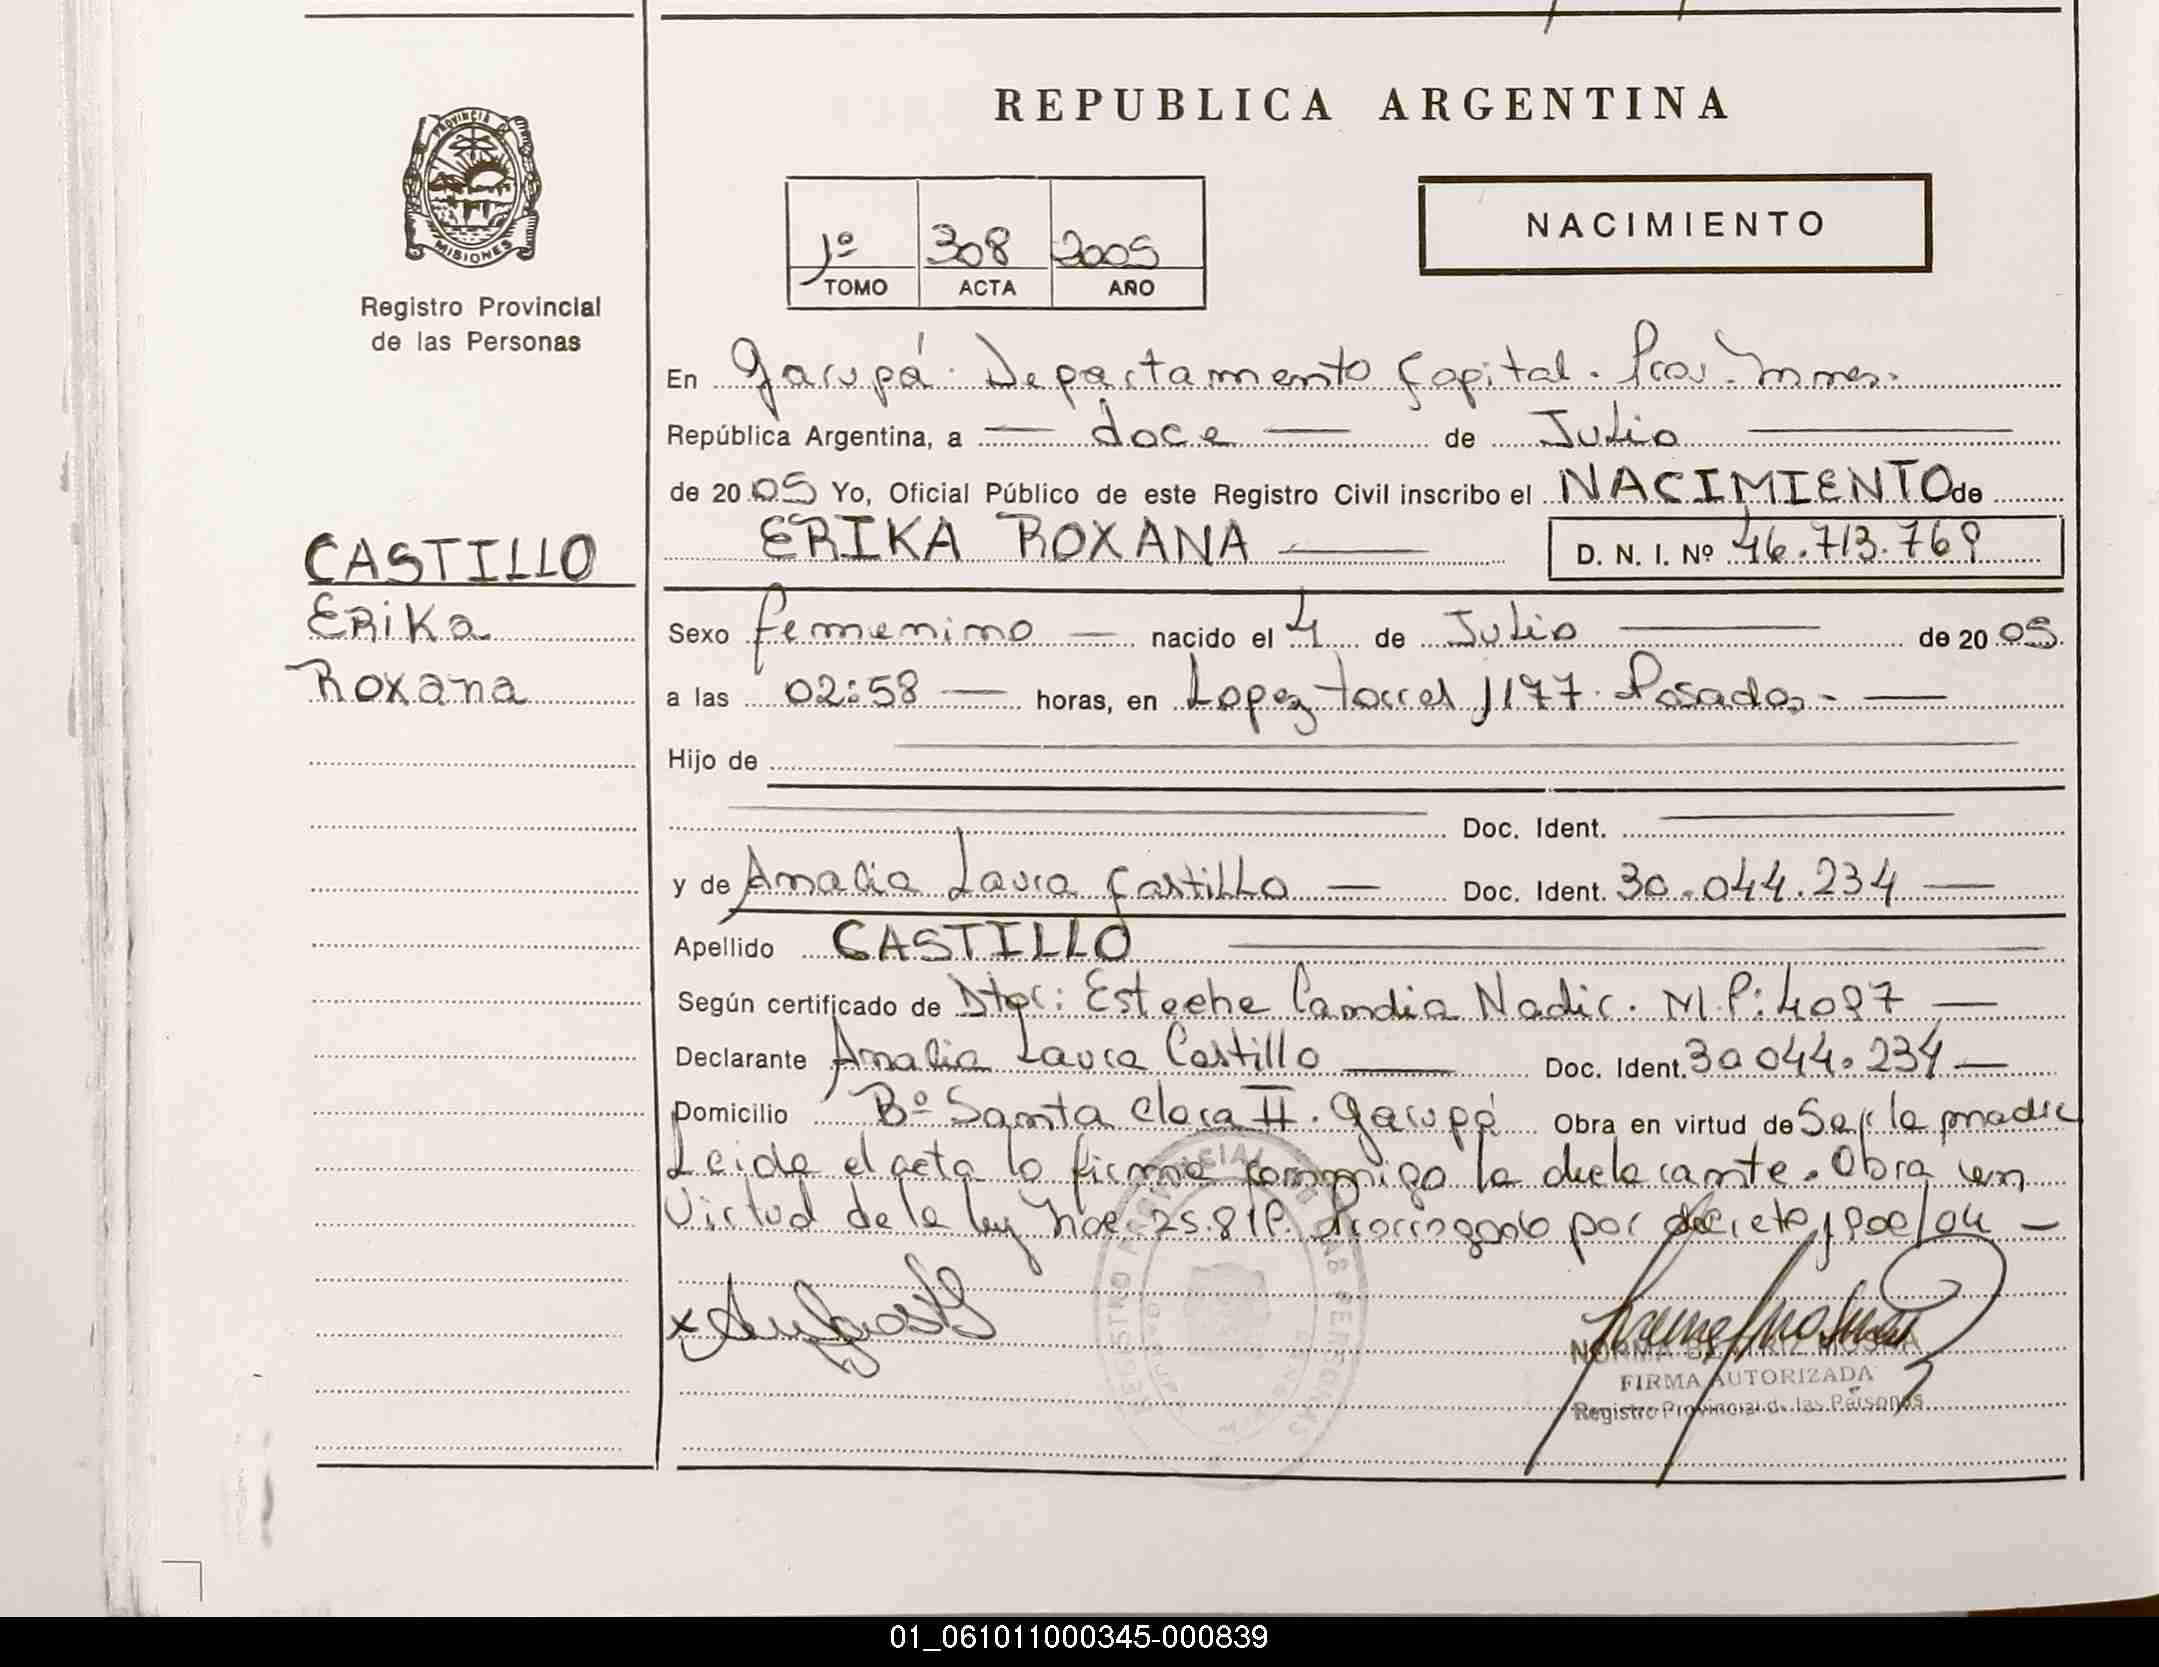 REPUBLICA ARGENTINA
PROVINCIA DE MISIONES
Registro Provincial
de las Personas
NACIMIENTO
1º 308 2005
TOMO ACTA AÑO
En Garupá. Departamento Capital. Prov. Mnes.
República Argentina, a — doce — de Julio —
de 20 05 Yo, Oficial Público de este Registro Civil inscribo el NACIMIENTO de
ERIKA ROXANA — D. N. I. Nº 46.713.769
CASTILLO
Erika
Roxana
Sexo femenino — nacido el 4 de Julio — de 20 05
a las 02:58 — horas, en Lopez Torres 1177. Posadas - —
Hijo de
Doc. Ident.
y de Amalia Laura Castillo — Doc. Ident. 30.044.234 —
Apellido CASTILLO
Según certificado de Dtor: Esteche Candia Nadir. M.P: 4097 —
Declarante Amalia Laura Castillo — Doc. Ident. 30 044.234 —
Domicilio Bº Santa Clara II. Garupá Obra en virtud de Ser la madre
Leida el acta la firma conmigo la declarante. Obra en
Virtud de la ley Nac. 25.819. Prorrogado por decreto /04 —
REGISTRO PROVINCIAL DE LAS PERSONAS
NORMA BEATRIZ
FIRMA AUTORIZADA
Registro Provincial de las Personas
01_061011000345-000839